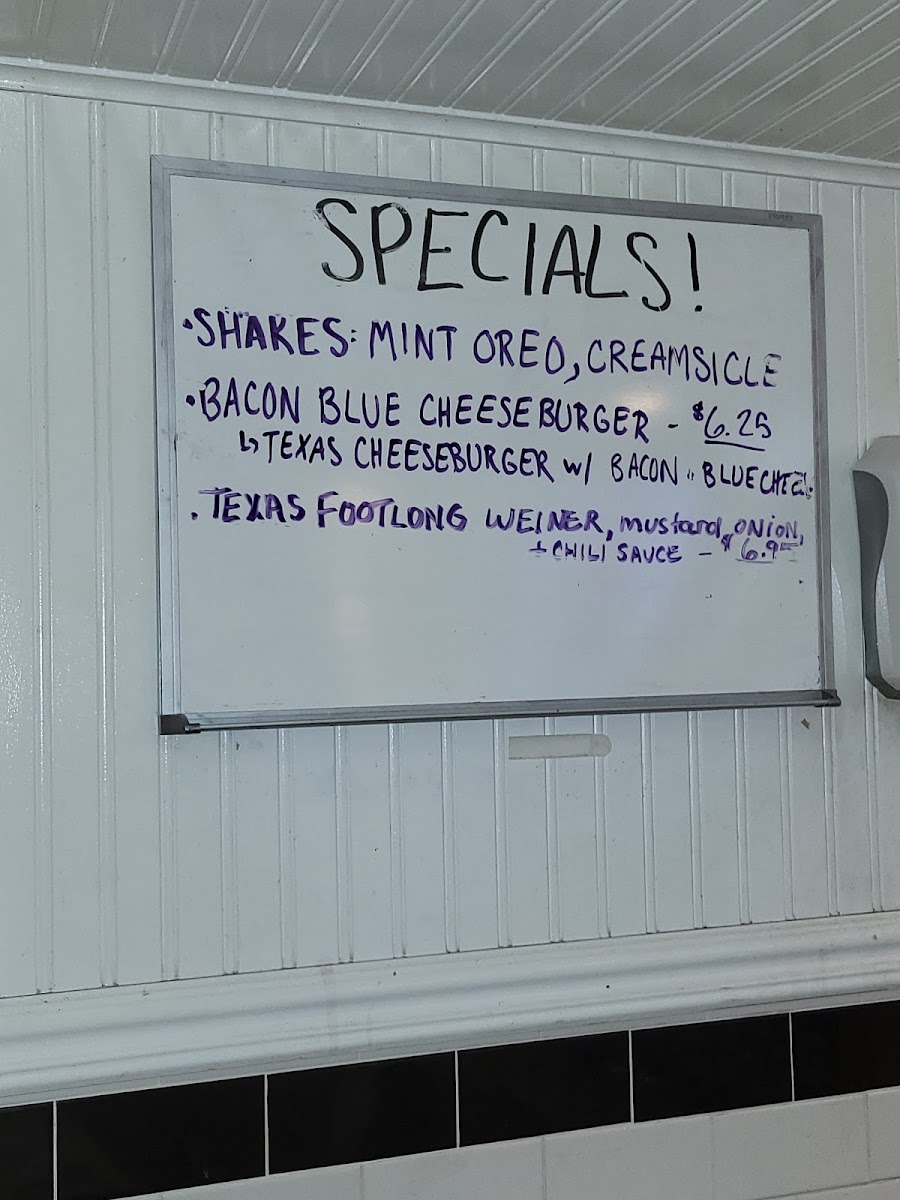 SPECIALS!
•SHAKES: MINT OREO, CREAMSICLE
•BACON BLUE CHEESEBURGER - $6.25
↳TEXAS CHEESEBURGER W/ BACON .. BLUECHEESE
•TEXAS FOOTLONG WEINER, mustard, ONION,
+ CHILI SAUCE - $6.95